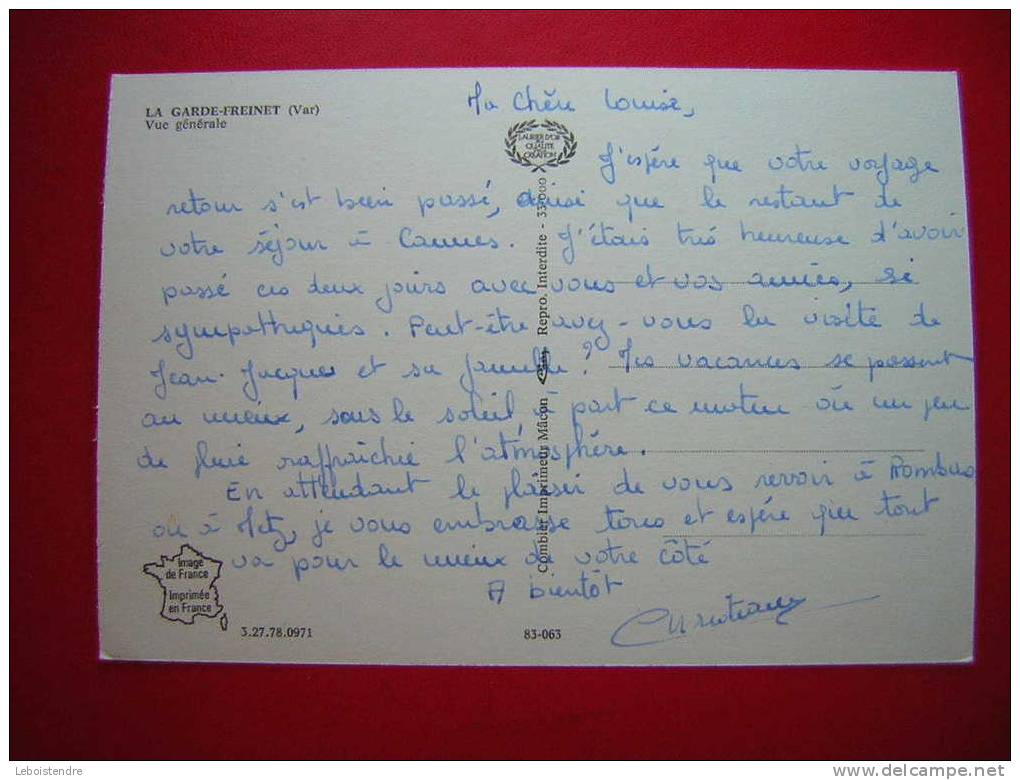 LA GARDE-FREINET (Var)
Vue générale
Ma Chère Louise,
LAURIER D'OR
DE LA
QUALITÉ
CRÉATION
J'espère que votre voyage
retour s'est bien passé, ainsi que le restant de
votre séjour à Cannes. J'étais très heureuse d'avoir
passé ces deux jours avec vous et vos amies, si
sympathiques. Peut-être avez-vous la visite de
Jean-Jacques et sa famille ? Mes vacances se passent
au mieux, sous le soleil, à part ce matin où un peu
de pluie rafraîchie l'atmosphère.
En attendant le plaisir de vous revoir à Rombas
ou à Metz, je vous embrasse tous et espère que tout
va pour le mieux de votre côté
A bientôt
Combier Imprimeur Mâcon
Repro. Interdite - 33/000
Image
de France
Imprimée
en France
3.27.78.0971
83-063
Leboistendre
delcampe.net